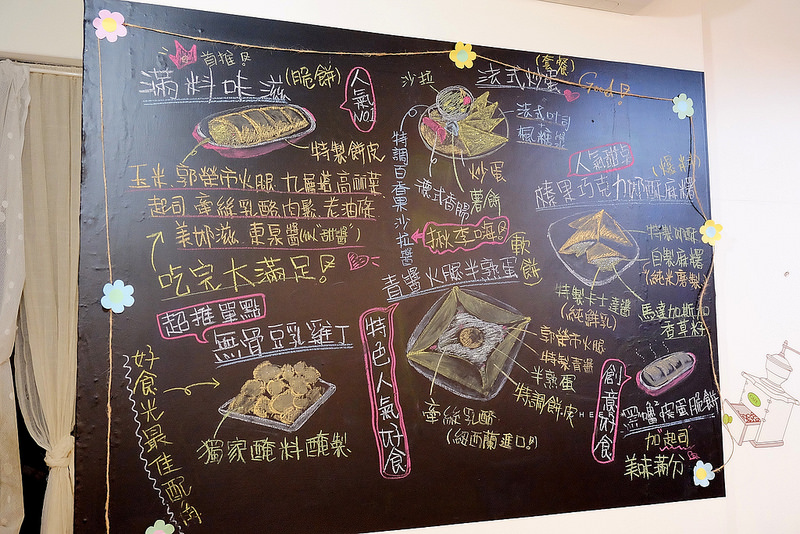 首推
滿料味滋(脆餅)
人氣NO.1
特製餅皮
玉米、郭榮市火腿、九層塔、高麗菜
起司、牽絲乳酪、肉鬆、老油條
美奶滋、東泉醬(似"甜醬")
吃完大滿足!
超推單點
無骨豆乳雞丁
獨家醃料醃製
好食光最佳配角
(套餐)
法式炒蛋
Good!
沙拉
法式吐司
楓糖漿
炒蛋
薯餅
德式香腸
特調百香果沙拉醬
揪李嗨
(軟餅)
青醬火腿半熟蛋
郭榮市火腿
特製青醬
半熟蛋
特調餅皮
牽絲乳酪
(紐西蘭進口!!)
特色人氣好食
人氣甜點
自製麻糬
(純米磨製)
特製卡士達醬
(純鮮乳)
馬達加斯加
香草籽
創意好食
皮蛋脆餅
加起司
美味滿分
HEER